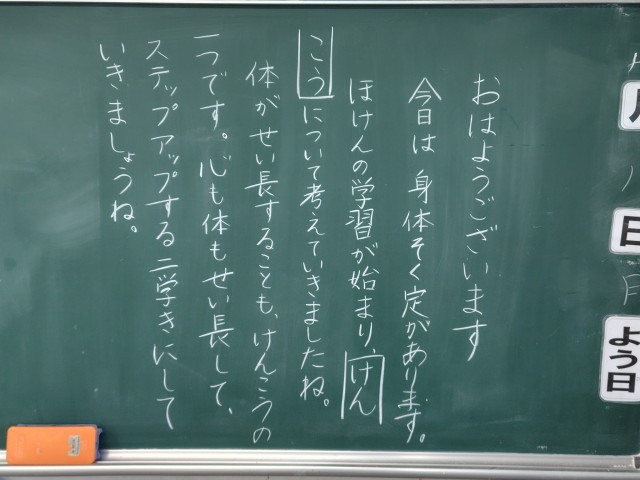 おはようございます
今日は身体そく定があります。
ほけんの学習が始まり、けん
こうについて考えていきましたね。
体がせい長することも、けんこうの
一つです。心も体もせい長して、
ステップアップする二学きにして
いきましょうね。
月
日
よう日